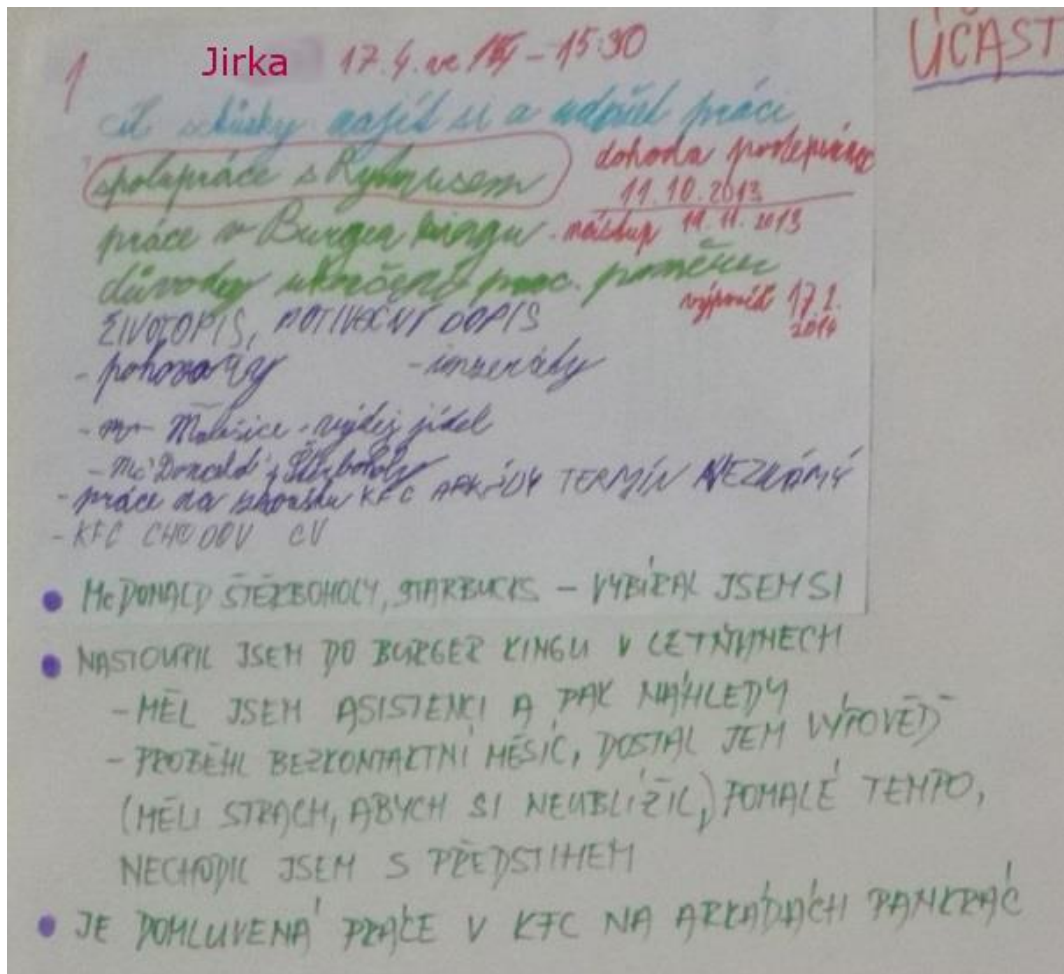 ÚČAST
1 Jirka 17.4. ve - 15:30
cíl schůzky najít si a udržet práci
spolupráce s Rytmusem dohoda podepsána
11.10.2013
práce v Burger Kingu - nástup 11.11.2013
důvody ukončení prac. poměru
výpověď 17.1.
2014
ŽIVOTOPIS, MOTIVAČNÍ DOPIS
- pohovory - inzeráty
- Malešice - výdej jídel
- McDonald's Štěrboholy
- práce na zkoušku KFC ARKÁDY TERMÍN NEZNÁMÝ
- KFC CHODOV CV
• McDONALD ŠTĚRBOHOLY, STARBUCKS - VYBÍRAL JSEM SI
• NASTOUPIL JSEM DO BURGER KINGU V LETŇANECH
- MĚL JSEM ASISTENCI A PAK NÁHLEDY
- PROBĚHL BEZKONTAKTNÍ MĚSÍC, DOSTAL JEM VÝPOVĚĎ
(MĚLI STRACH, ABYCH SI NEUBLÍŽIL,) POMALÉ TEMPO,
NECHODIL JSEM S PŘEDSTIHEM
• JE DOMLUVENÁ PRÁCE V KFC NA ARKÁDÁCH PANKRÁC